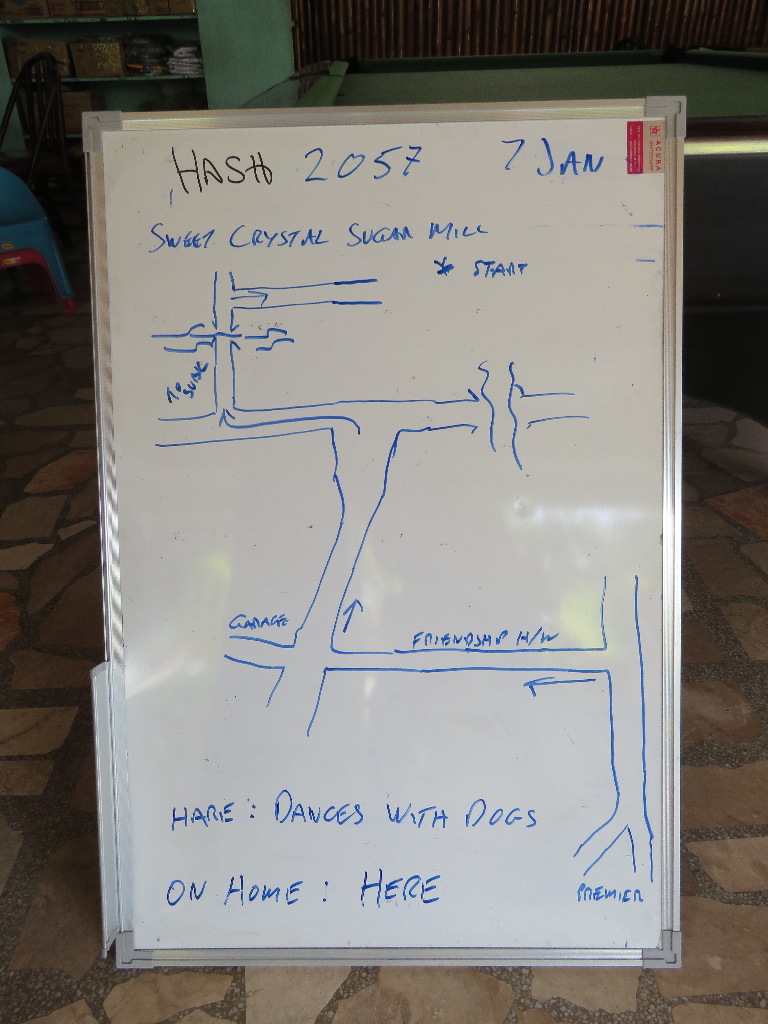 HASH 2057 7 JAN
AGURA
SWEET CRYSTAL SUGAR MILL
* START
TO SUBIC
GARAGE
FRIENDSHIP H/W
HARE: DANCES WITH DOGS
ON HOME: HERE
PREMIER